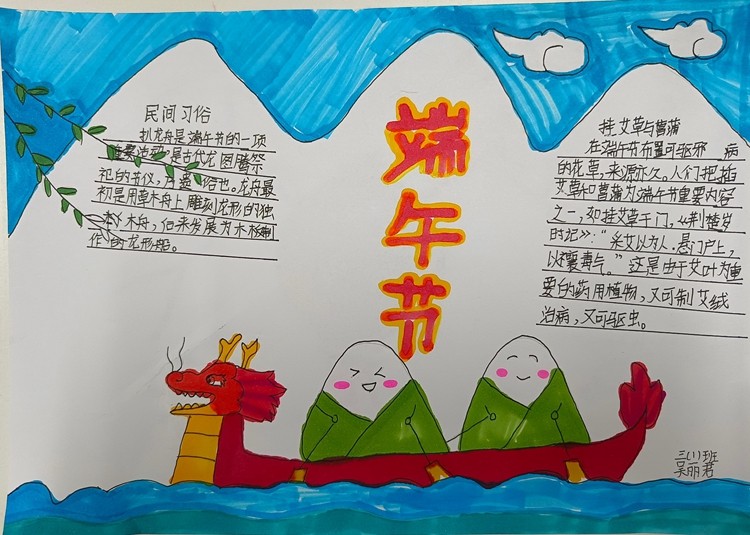 民间习俗
扒龙舟是端午节的一项
是古代龙图腾祭
祀的节仪,
俗也。龙舟最
初是用草木舟上雕刻龙形的独
木舟,后来发展为木板制
作的龙形船。
端午节
挂艾草与菖蒲
在端午节布置可驱邪 病
的花草,来源亦久。人们把插
艾草和菖蒲为端午节重要内容
之一,如挂艾草于门,《荆楚岁
时记》:“采艾以为人.悬门户上,
以禳毒气。”这是由于艾叶为重
要的药用植物,又可制艾绒
治病,又可驱虫。
三(1)班
吴丽君